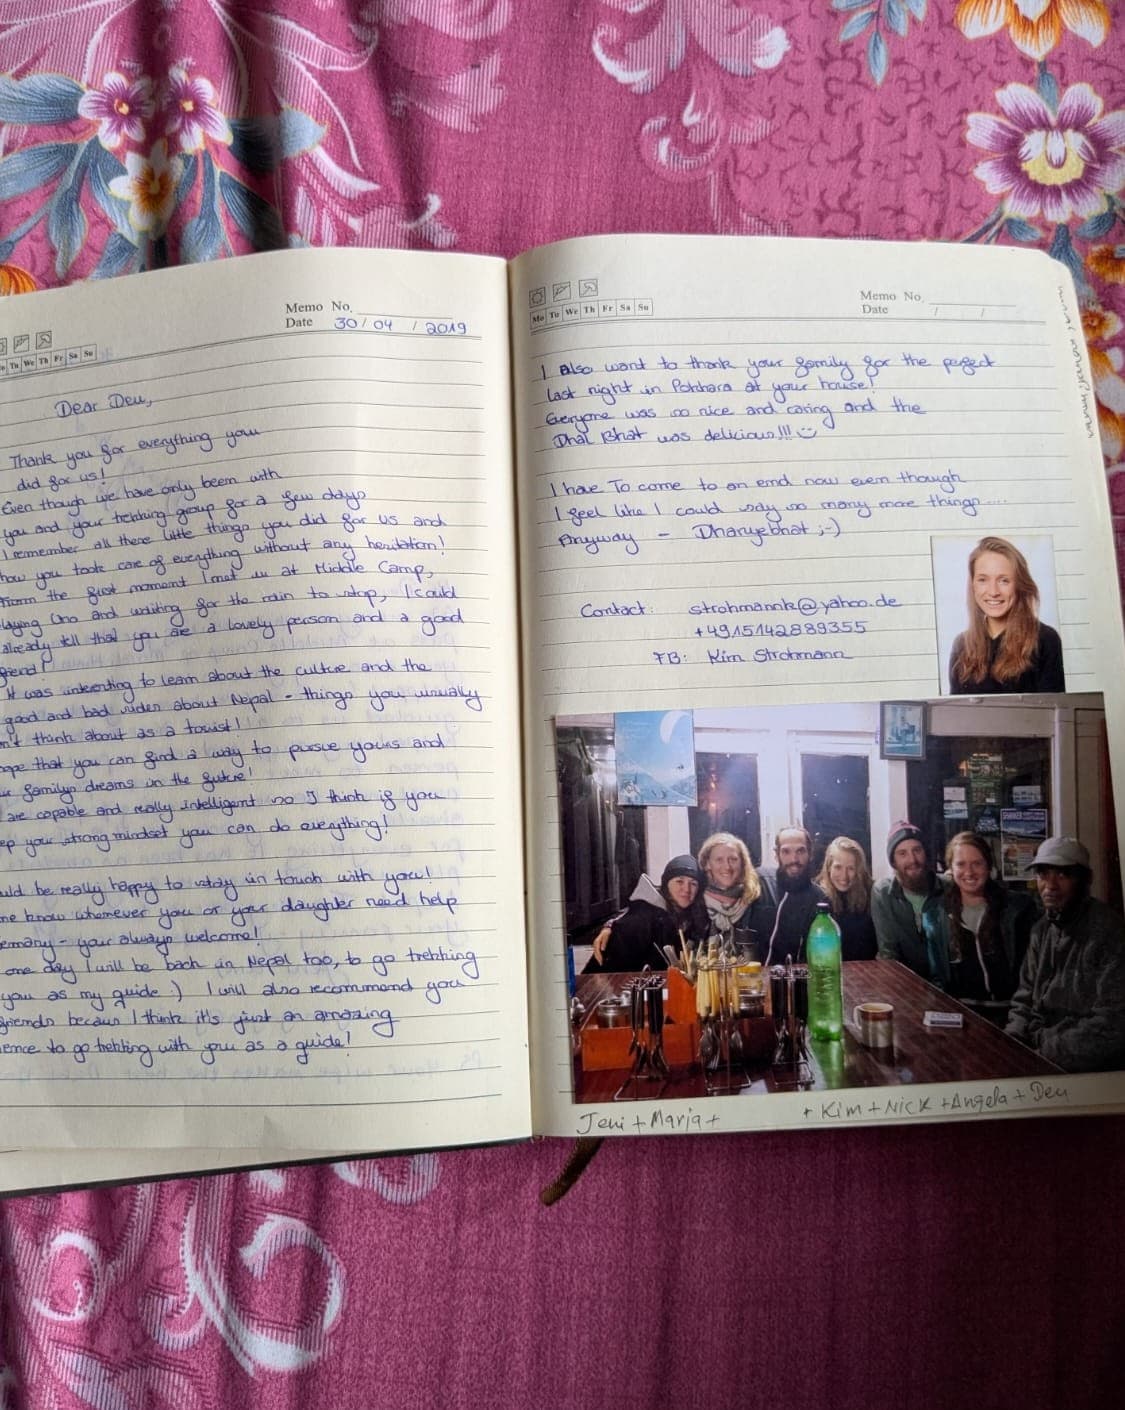 Memo No.
Date 30 / 04 / 2019
Tu We Th Fr Sa Su
Dear Deu,
Thank you for everything you
did for us!
Even though we have only been with
you and your trekking group for a few days
I remember all these little things you did for us and
how you took care of everything without any hesitation!
From the first moment I met us at Middle Camp,
playing Uno and waiting for the rain to stop, I could
already tell that you are a lovely person and a good
friend!
It was interesting to learn about the culture and the
good and bad sides about Nepal - things you usually
n't think about as a tourist!
ope that you can find a way to pursue yours and
family's dreams in the future!
are capable and really intelligent so I think if you
ep your strong mindset you can do everything!
uld be really happy to stay in touch with you!
me know whenever you or your daughter need help
ermany - your always welcome!
one day I will be back in Nepal too, to go trekking
you as my guide :) I will also recommend you
friends becaus I think it's just an amazing
ience to go trekking with you as a guide!
Memo No.
Date / /
Mo Tu We Th Fr Sa Su
I also want to thank your family for the perfect
last night in Pokhara at your house!
Everyone was so nice and caring and the
Dhal Bhat was delicious!!!
I have to come to an end now even though
I feel like I could say so many more things ....
Anyway - Dhanyebhat ;-)
Contact: strohmannk@yahoo.de
+4915142889355
FB: Kim Strohmann
Jeni + Marja +
+ Kim + Nick + Angela + Deu